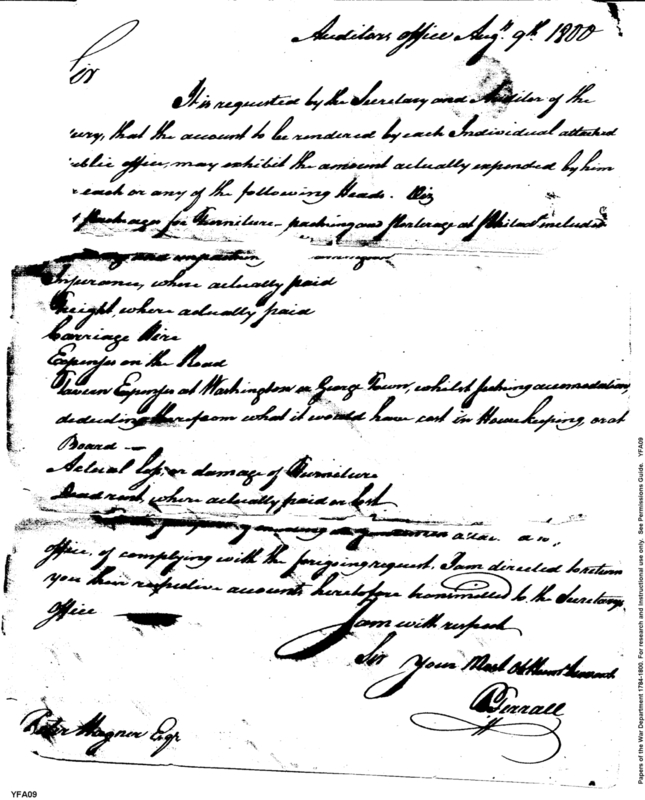 Auditors office Augt 9th 1800
Sir
It is requested by the Secretary and Auditor of the
ury, that the account to be rendered by each Individual attached
ublic office, may exhibit the amount actually expended by him
each or any of the following Heads. Viz
Packages for Furniture - packing and Porterage at Philada included
and unpacking
Insurance, where actually paid
Freight, where actually paid
Carriage Hire
Expenses on the Road
Tavern Expenses at Washington or George Town, whilst seeking accomodation,
deducting therefrom what it would have cost in Housekeeping, or at
Board —
Actual loss, or damage of Furniture
Dead rent, where actually paid or lost.
purpose of
office, of complying with the foregoing request, I am directed to return
you their respective accounts heretofore transmitted to the Secretarys
office
I am with respect
Sir Your Most Obt Servant
Ferrall
Peter Hagner Esqr
YFA09
Papers of the War Department 1784-1800. For research and instructional use only. See Permissions Guide. YFA09